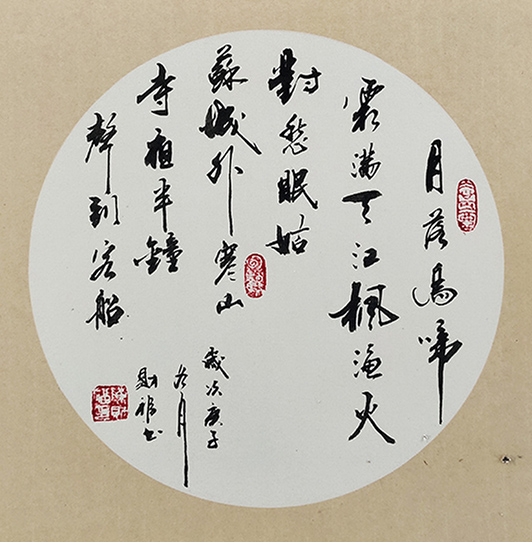 月落烏啼
霜滿天江楓漁火
對愁眠姑
蘇城外寒山
寺夜半鐘
聲到客船
歲次庚子
冬月
財福书